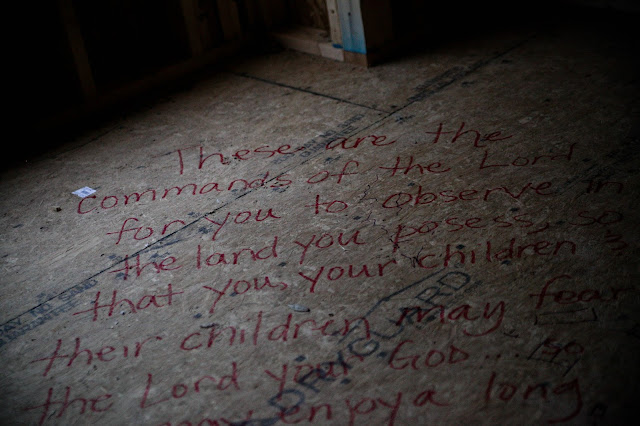 These are the
commands of the Lord
for you to observe in
the land you posess, so
that you, your children &
their children may fear
the Lord your God...
may enjoy a long
DRYGUARD